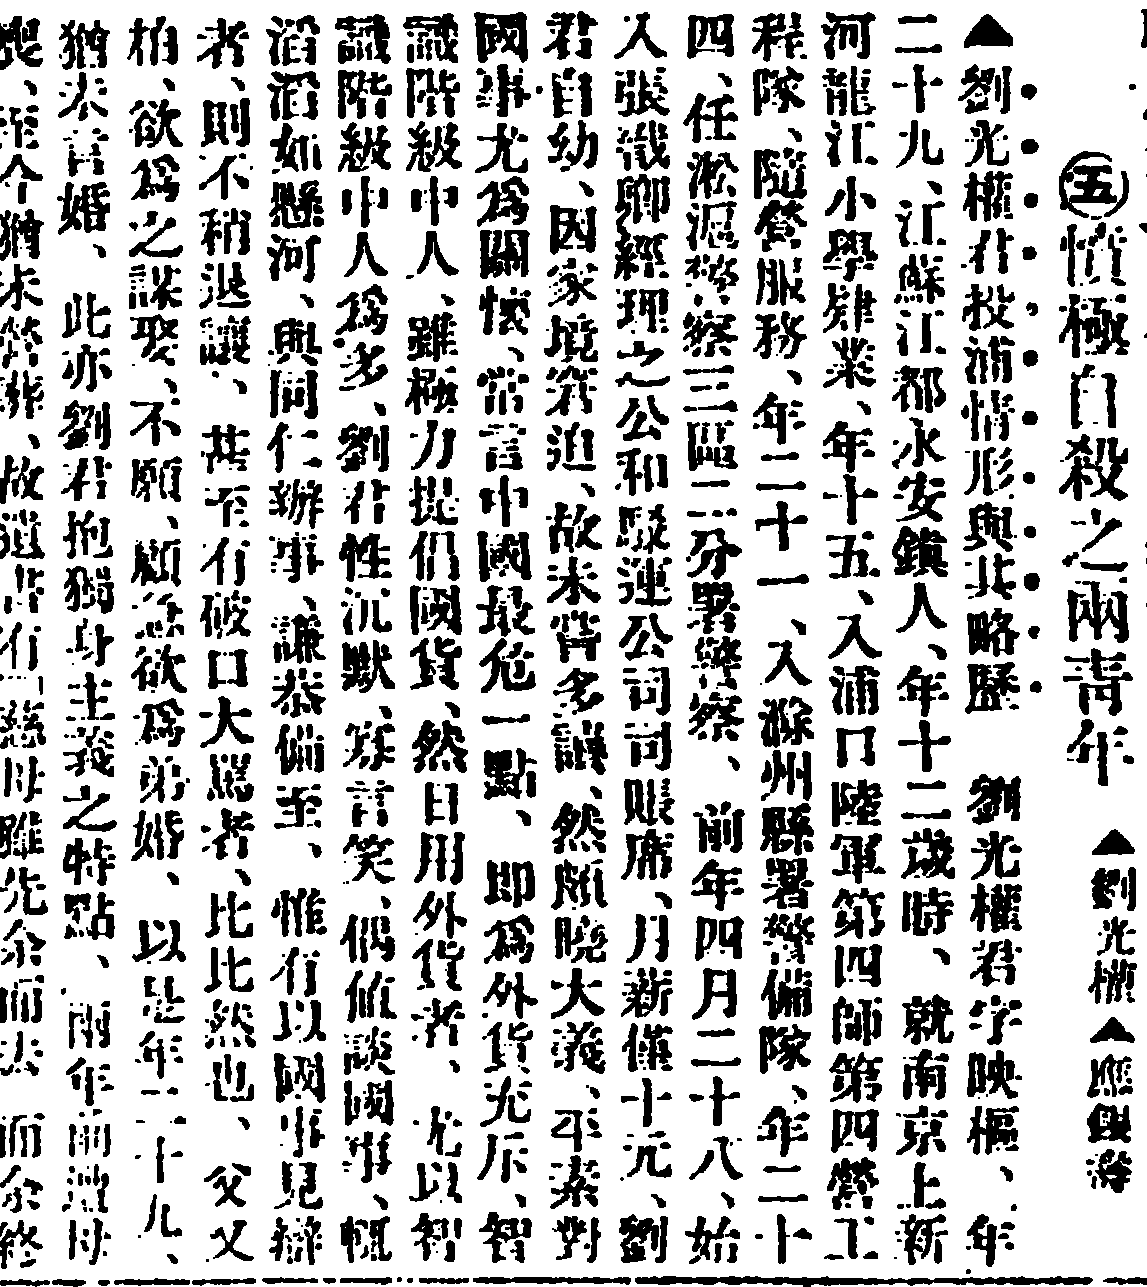 ㊄憤極自殺之兩靑年　▲劉光權　▲應銀濤
▲劉光權君投浦情形與其略歷　劉光權君字映樞、年
二十九、江蘇江都永安鎭人、年十二歲時、就南京上新
河龍江小學肄業、年十五、入浦口陸軍第四師第四營工
程隊、隨營服務、年二十一、入滁州縣署警備隊、年二十
四、任淞滬警察三區二分署警察、前年四月二十八、始
入張織卿經理之公和駁運公司司賬席、月薪僅十元、劉
君自幼、因家境窘迫、故未嘗多讀、然頗曉大義、平素對
國事尤爲關懷、常言中國最危一點、卽爲外貨充斥、智
識階級中人、雖極力提倡國貨、然日用外貨者、尤以智
識階級中人爲多、劉君性沉默、寡言笑、偶値談國事、輒
滔滔如懸河、與同仁辦事、謙恭備至、惟有以國事見辯
者、則不稍退讓、甚至有破口大罵者、比比然也、父又
柏、欲爲之謀娶、不願、顧欲爲弟婚、以是年二十九、
猶未言婚、此亦劉君抱獨身主義之特點、兩年前遭母
喪、至今猶未營葬、故遺書有「慈母雖先余而去　而余終